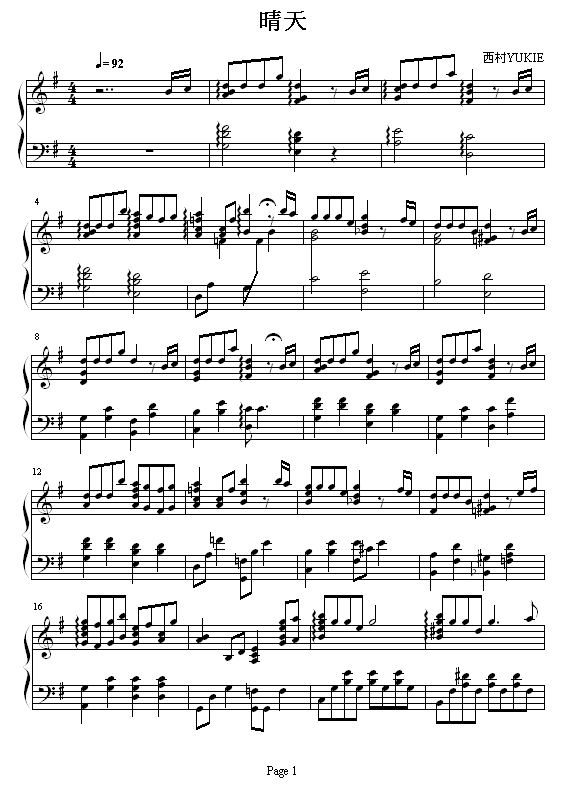 晴天
西村YUKIE
♩=92
4
8
12
16
Page 1